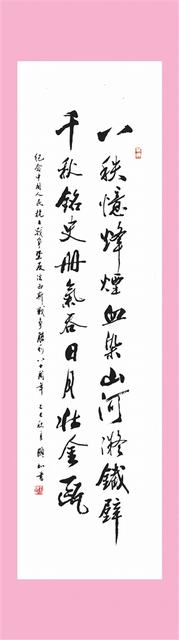 八秩憶烽煙血染山河凝鐵壁
千秋銘史册氣吞日月壯金甌
紀念中国人民抗日戰爭暨反法西斯戰爭勝利八十周年 乙巳秋月 書